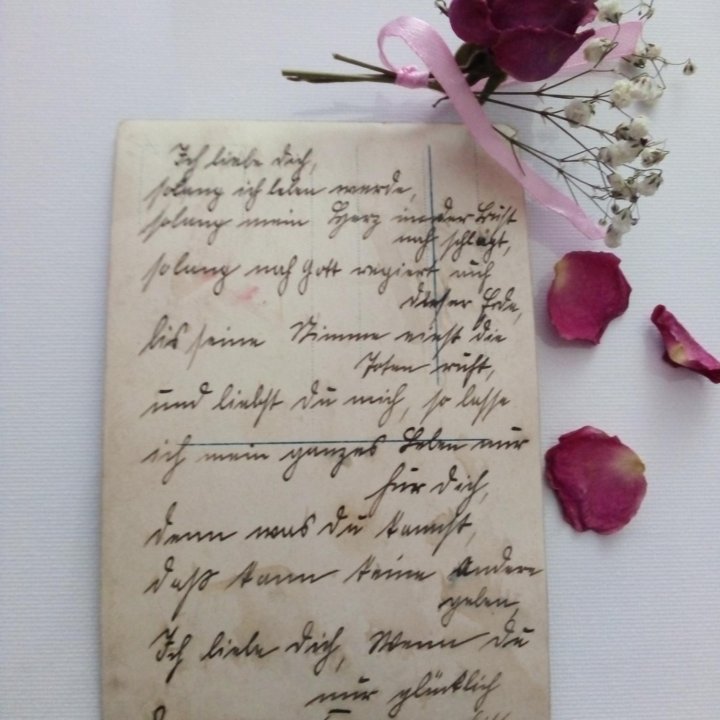 Ich liebe dich,
solang ich leben werde,
solang mein Herz in der Brust
noch schlägt,
solang noch Gott regiert auf
dieser Erde,
bis seine Stimme einst die
Toten ruft,
und liebst du mich, so lasse
ich mein ganzes Leben nur
für dich,
denn was du kannst,
daß kann keine Andere
geben,
Ich liebe dich, Wenn du
nur glücklich